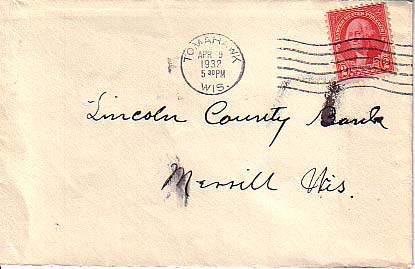 TOMAHAWK
APR 9
1932
5 30 PM
WIS.
Lincoln County Bank
Merrill Wis.